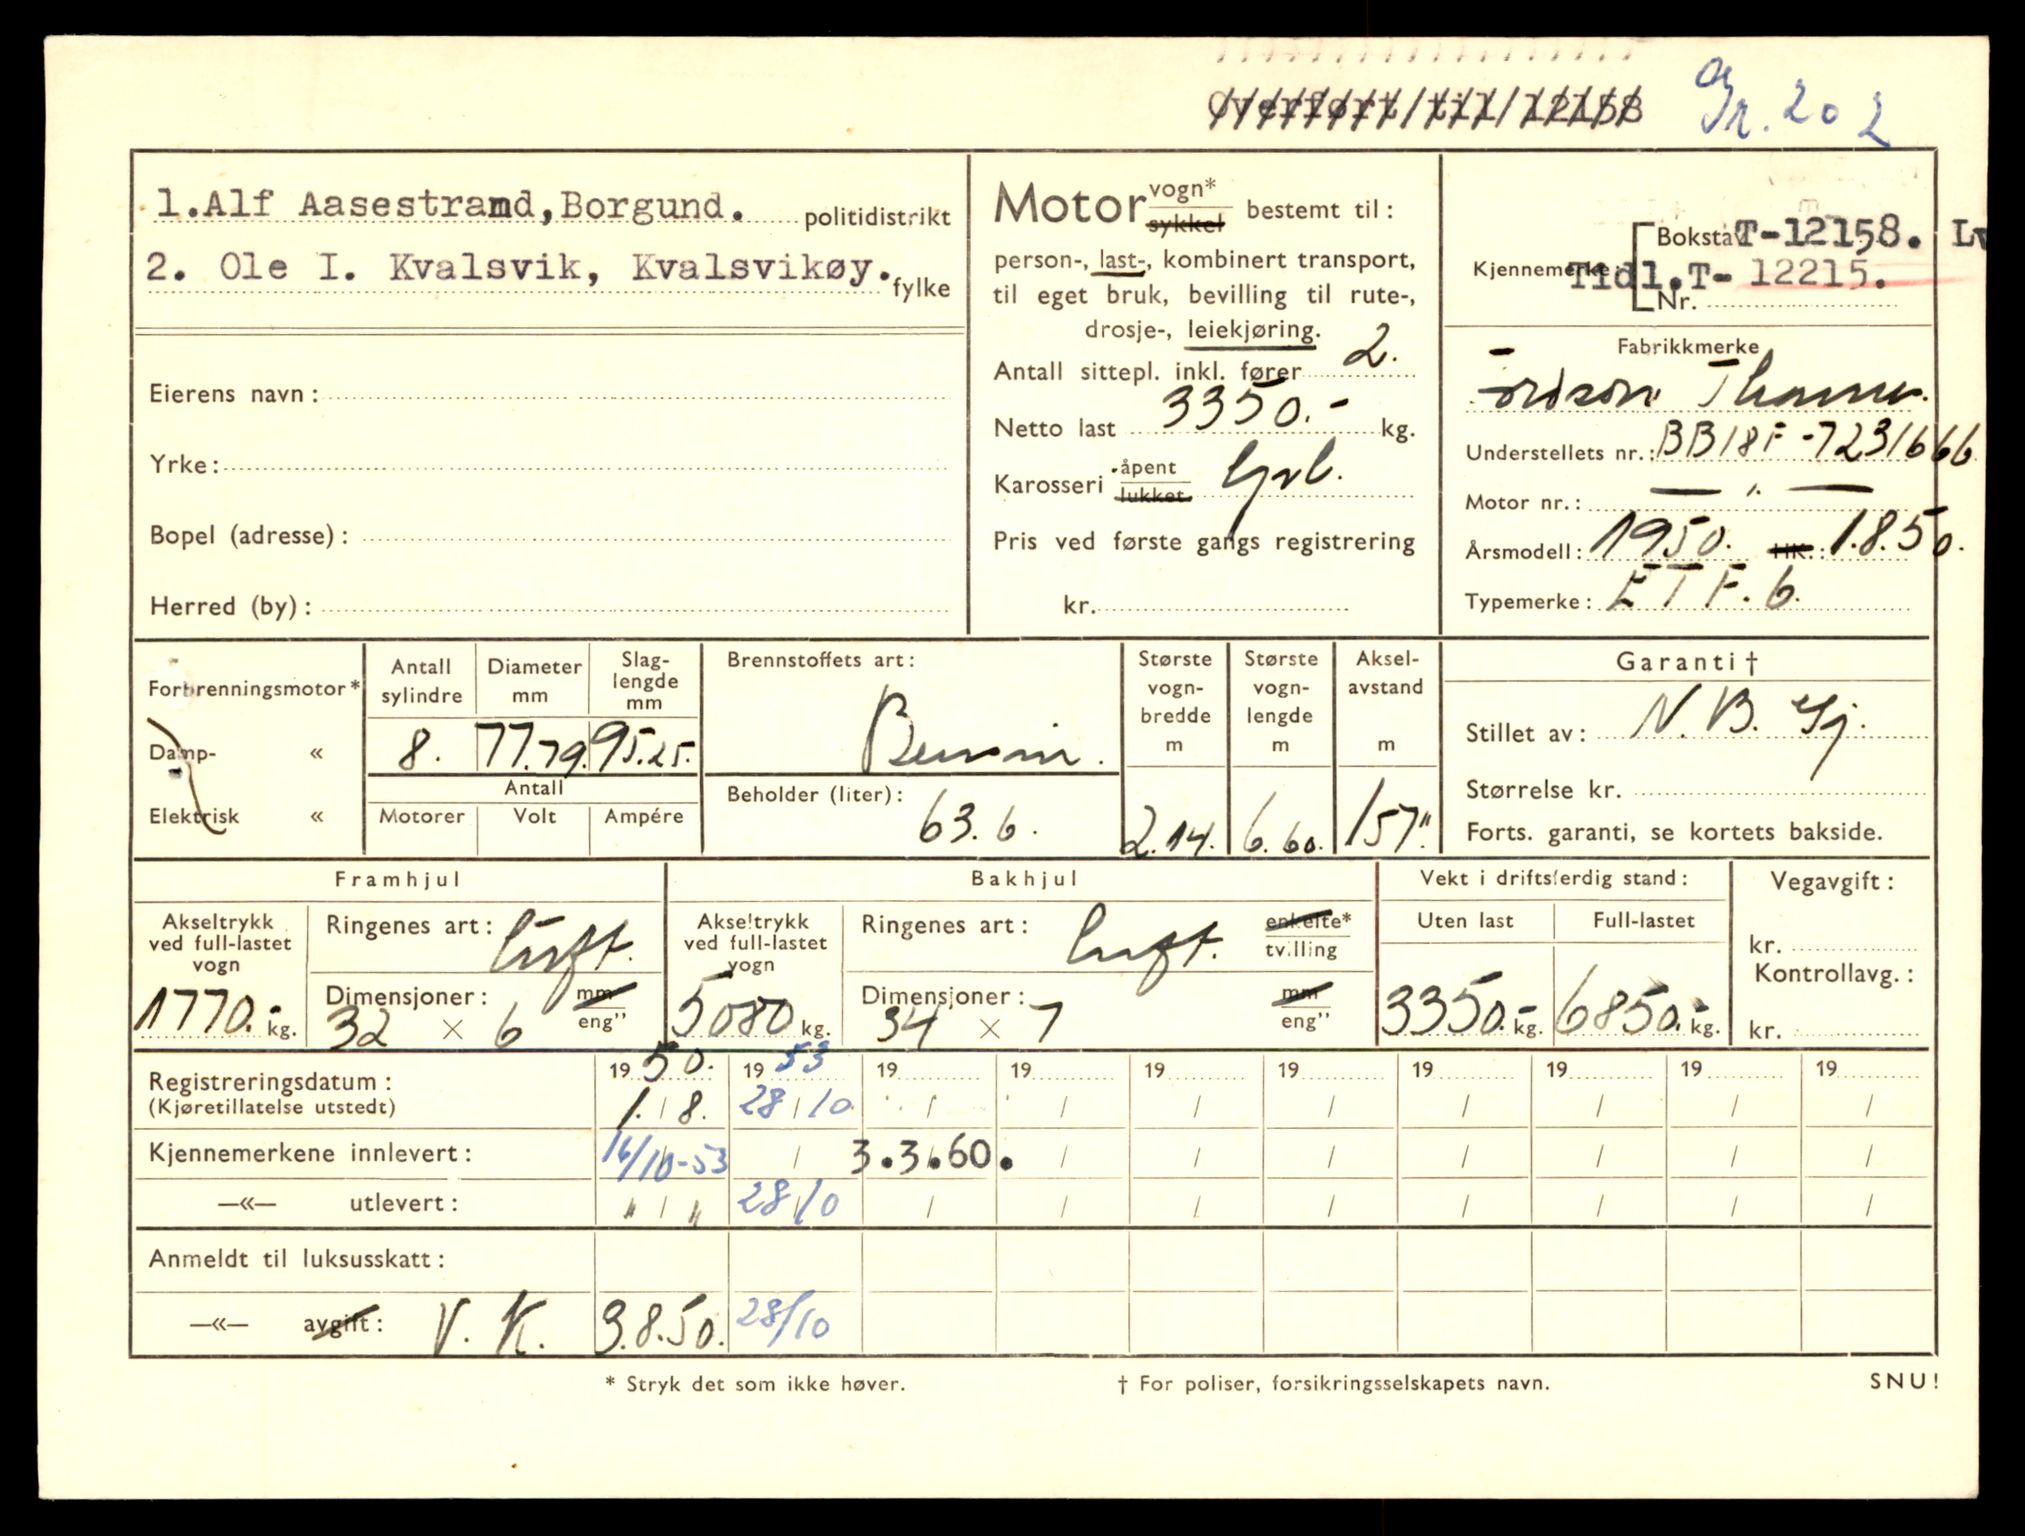 Overført til 12158
Gr. 202
1.Alf Aasestrand,Borgund. politidistrikt
2. Ole I. Kvalsvik, Kvalsvikøy. fylke
Eierens navn:
Yrke:
Bopel (adresse):
Herred (by):
Motor vogn* sykkel bestemt til:
person-, last-, kombinert transport,
til eget bruk, bevilling til rute-,
drosje-, leiekjøring.
Antall sittepl. inkl. fører 2.
Netto last 3350.- kg.
Karosseri åpent lukket
Pris ved første gangs registrering
kr.
Bokstav T-12158. Lv
Kjennemerke Tidl.T- 12215.
Nr.
Fabrikkmerke
Fordson Thames.
Understellets nr.: BB18F-7231666
Motor nr.: — " —
Årsmodell: 1950. HK.: 1.8.50.
Typemerke: ETF.6.
Forbrenningsmotor*
Damp- «
Elektrisk «
Antall sylindre
8.
Diameter mm
77.79.
Slag-lengde mm
95.25.
Antall
Motorer Volt Ampére
Brennstoffets art:
Bensin.
Beholder (liter):
63.6.
Største vogn-bredde m
2.14.
Største vogn-lengde m
6.60.
Aksel-avstand m
157"
Garanti †
Stillet av: N.B. Gj.
Størrelse kr.
Forts. garanti, se kortets bakside.
Framhjul
Akseltrykk ved full-lastet vogn
1770.- kg.
Ringenes art: luft.
Dimensjoner: mm eng"
32 × 6
Bakhjul
Akseltrykk ved full-lastet vogn
5080 kg.
Ringenes art: luft. enkelte* tvilling
Dimensjoner: mm eng"
34 × 7
Vekt i driftsferdig stand:
Uten last Full-lastet
3350.- kg. 6850.- kg.
Vegavgift:
kr.
Kontrollavg.:
kr.
Registreringsdatum: 1950. 1953 19 19 19 19 19 19 19 19
(Kjøretillatelse utstedt) 1. / 8. 28 / 10. / / / / / / / /
Kjennemerkene innlevert: 16/10-53 / 3.3.60. / / / / / / /
—«— utlevert: " / " 28/10 / / / / / / / /
Anmeldt til luksusskatt:
—«— avgift: V. K. 3.8.50. 28/10
* Stryk det som ikke høver.
† For poliser, forsikringsselskapets navn.
SNU!